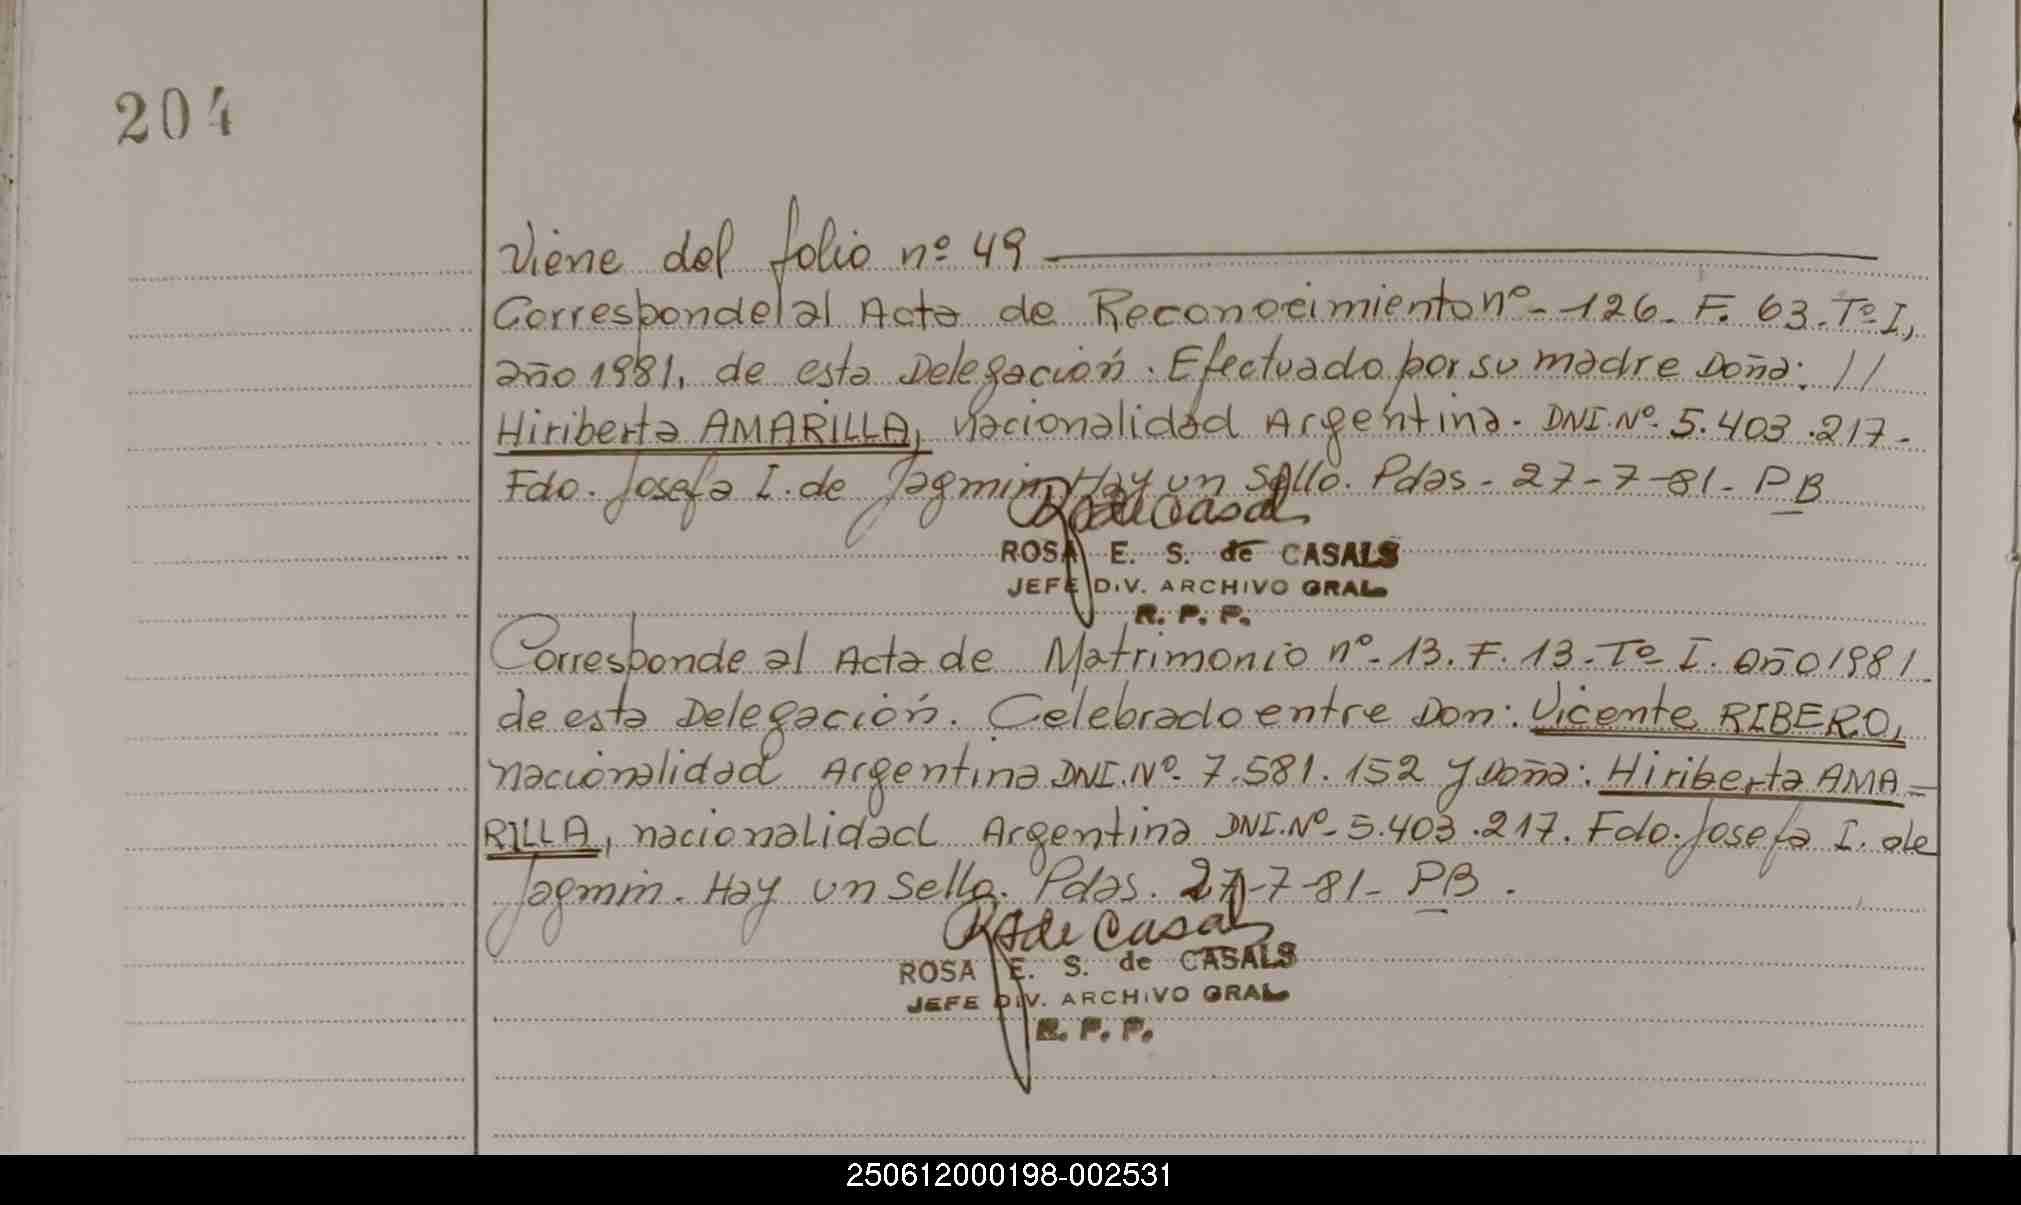 204
Viene del folio nº 49
Corresponde al Acta de Reconocimiento nº- 126- F. 63- Tº I,
año 1981, de esta Delegación. Efectuado por su madre Doña: //
Hiriberta AMARILLA, nacionalidad Argentina- DNI.Nº- 5.403.217-
Fdo. Josefa I. de Jagmin. Hay un Sello. Pdas- 27-7-81- PB
R de Casals
ROSA E. S. de CASALS
JEFE DIV. ARCHIVO GRAL
R. P. P.
Corresponde al Acta de Matrimonio nº- 13. F. 13- Tº I. año 1981
de esta Delegación. Celebrado entre Don: Vicente RIBERO,
nacionalidad Argentina DNI.Nº- 7.581.152 y Doña: Hiriberta AMA=
RILLA, nacionalidad Argentina DNI.Nº- 5.403.217. Fdo. Josefa I. de
Jagmin. Hay un Sello. Pdas. 27-7-81- PB.
R de Casals
ROSA E. S. de CASALS
JEFE DIV. ARCHIVO GRAL
R. P. P.
250612000198-002531